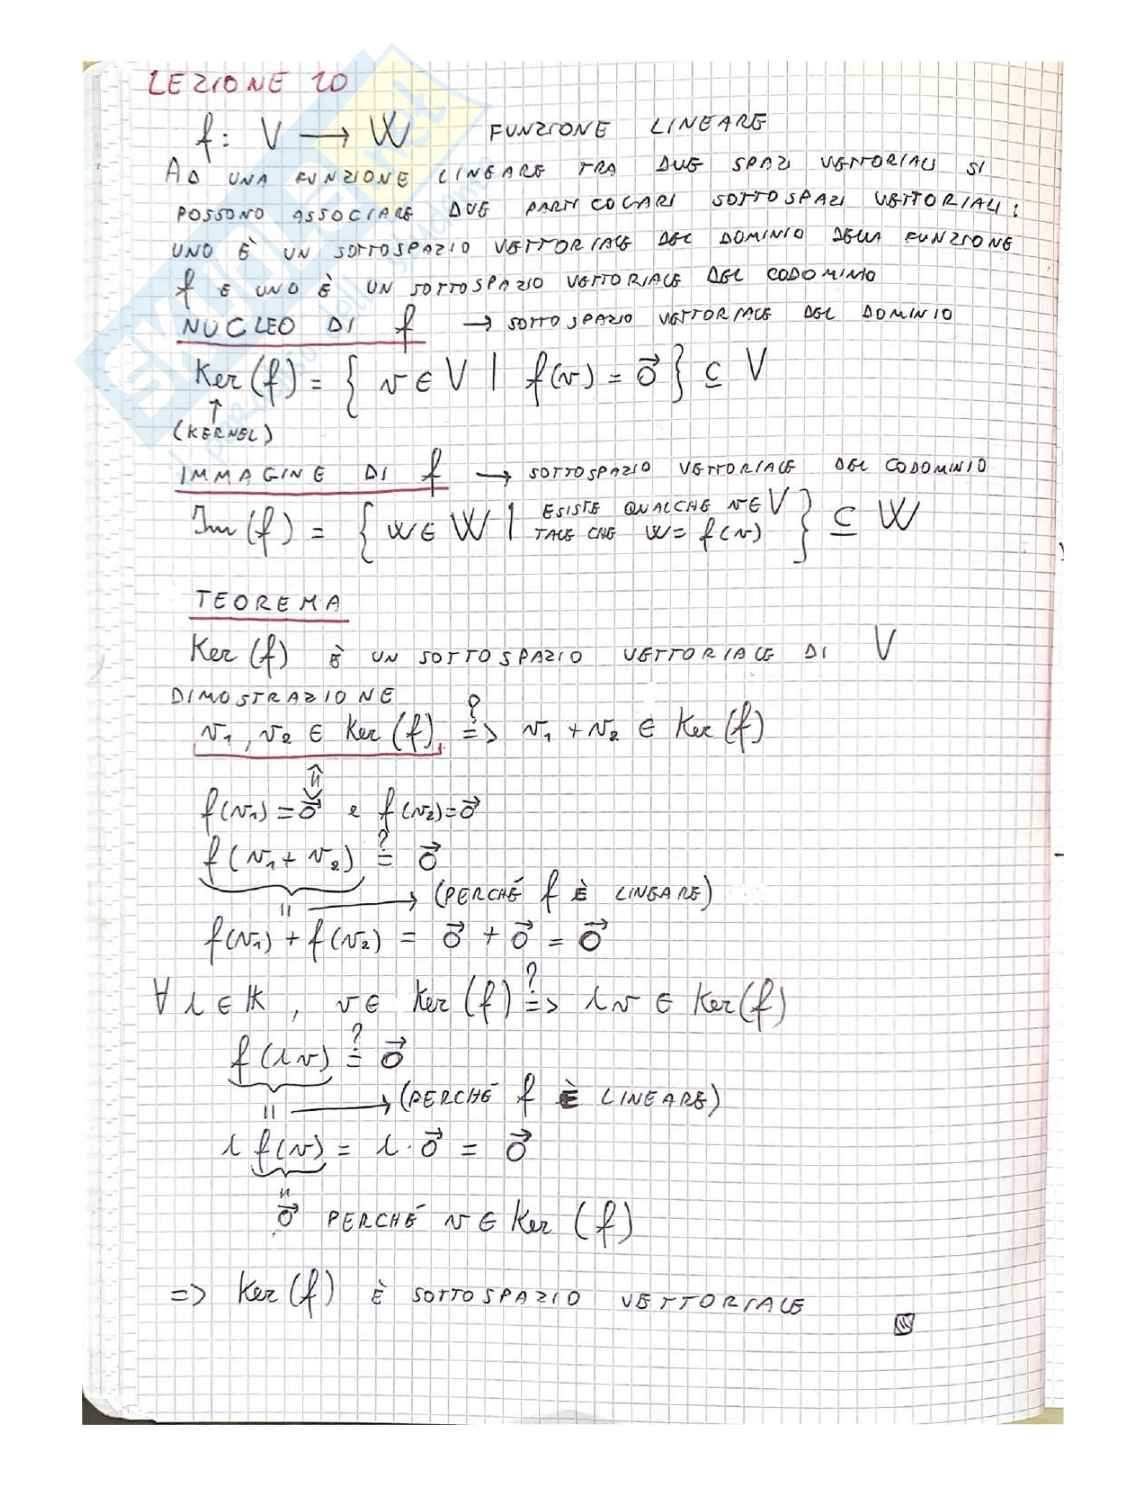 LEZIONE 20
f: V → W FUNZIONE LINEARE
AD UNA FUNZIONE LINEARE TRA DUE SPAZI VETTORIALI SI
POSSONO ASSOCIARE DUE PARTICOLARI SOTTOSPAZI VETTORIALI:
UNO È UN SOTTOSPAZIO VETTORIALE DEL DOMINIO DELLA FUNZIONE
f E UNO È UN SOTTOSPAZIO VETTORIALE DEL CODOMINIO
NUCLEO DI f → SOTTOSPAZIO VETTORIALE DEL DOMINIO
Ker(f) = { v ∈ V | f(v) = 0⃗ } ⊆ V
↑
(KERNEL)
IMMAGINE DI f → SOTTOSPAZIO VETTORIALE DEL CODOMINIO
Im(f) = { w ∈ W | ESISTE QUALCHE v ∈ V
TALE CHE w = f(v) } ⊆ W
TEOREMA
Ker(f) È UN SOTTOSPAZIO VETTORIALE DI V
DIMOSTRAZIONE
v₁, v₂ ∈ Ker(f) ?⇒ v₁ + v₂ ∈ Ker(f)
⇕
f(v₁) = 0⃗ e f(v₂) = 0⃗
f(v₁ + v₂) ?= 0⃗
" → (PERCHÉ f È LINEARE)
f(v₁) + f(v₂) = 0⃗ + 0⃗ = 0⃗
∀ λ ∈ K, v ∈ Ker(f) ?⇒ λv ∈ Ker(f)
f(λv) ?= 0⃗
" → (PERCHÉ f È LINEARE)
λ f(v) = λ · 0⃗ = 0⃗
"
0⃗ PERCHÉ v ∈ Ker(f)
=> Ker(f) È SOTTOSPAZIO VETTORIALE